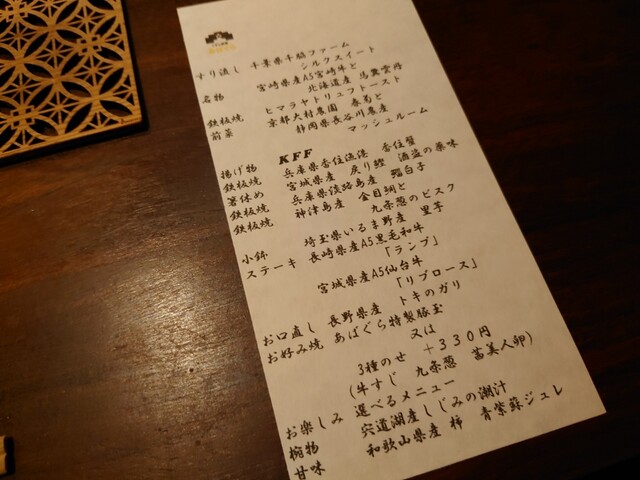 すり流し 千葉県千脇ファーム
シルクスイート
名物 宮崎県産A5宮崎牛と
北海道産 馬糞雲丹
鉄板焼 ヒマラヤトリュフトースト
前菜 京都大村農園 春菊と
静岡県長谷川農産
マッシュルーム
揚げ物 KFF
鉄板焼 兵庫県香住漁港 香住蟹
箸休め 宮城県産 戻り鰹 酒盗の薬味
鉄板焼 兵庫県淡路島産 鱈白子
鉄板焼 神津島産 金目鯛と
九条葱のビスク
小鉢 埼玉県いるま野産 里芋
ステーキ 長崎県産A5黒毛和牛
「ランプ」
宮城県産A5仙台牛
「リブロース」
お口直し 長野県産 トキのガリ
お好み焼 あばぐら特製豚玉
又は
3種のせ +330円
(牛すじ 九条葱 苗美人卵)
お楽しみ 選べるメニュー
椀物 宍道湖産しじみの潮汁
甘味 和歌山県産 柿 青紫蘇ジュレ